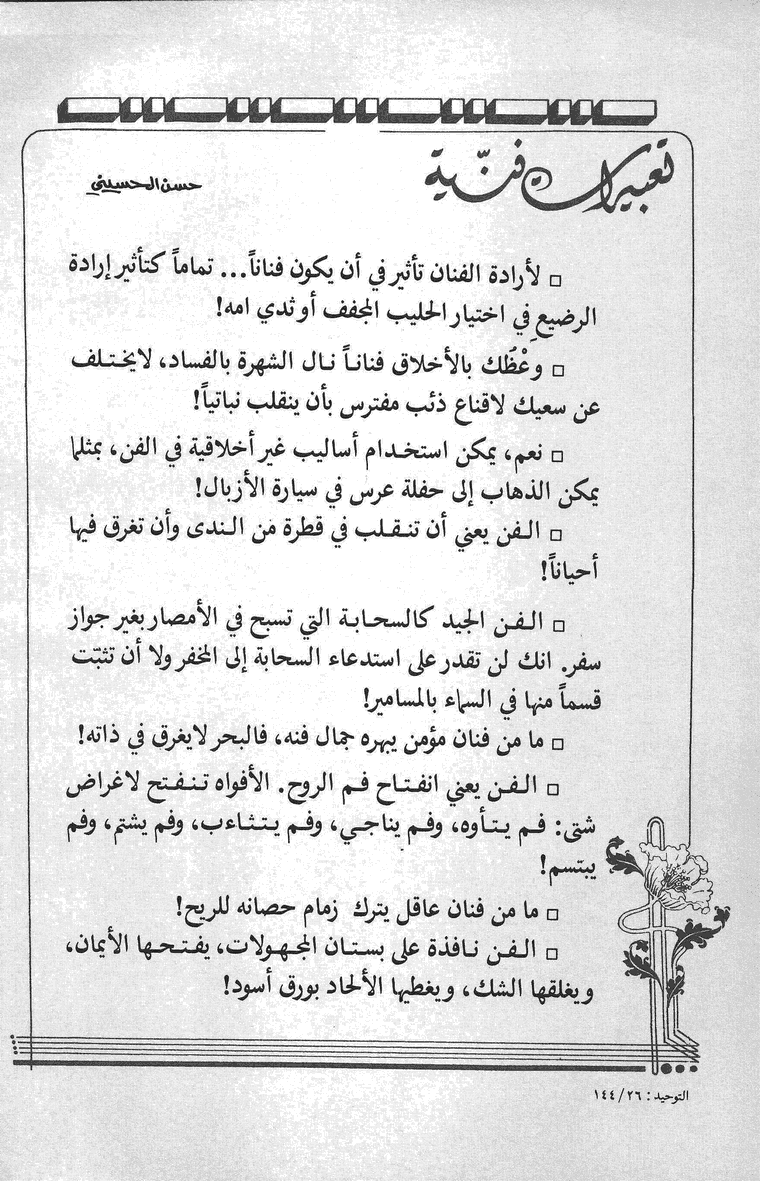 تعبيرات فنّية
حسن الحسيني
□ لأرادة الفنان تأثير في أن يكون فناناً... تماماً كتأثير إرادة
الرضيع في اختيار الحليب المجفف أو ثدي امه!
□ وعْظُك بالأخلاق فناناً نال الشهرة بالفساد، لايختلف
عن سعيك لاقناع ذئب مفترس بأن ينقلب نباتياً!
□ نعم، يمكن استخدام أساليب غير أخلاقية في الفن، بمثلما
يمكن الذهاب إلى حفلة عرس في سيارة الأزبال!
□ الفن يعني أن تنقلب في قطرة من الندى وأن تغرق فيها
أحياناً!
□ الفن الجيد كالسحابة التي تسبح في الأمصار بغير جواز
سفر. انك لن تقدر على استدعاء السحابة إلى المخفر ولا أن تثبّت
قسماً منها في السماء بالمسامير!
□ ما من فنان مؤمن يبهره جمال فنه، فالبحر لايغرق في ذاته!
□ الفن يعني انفتاح فم الروح. الأفواه تنفتح لاغراض
شتى: فم يتأوه، وفم يناجي، وفم يتثاءب، وفم يشتم، وفم
يبتسم!
□ ما من فنان عاقل يترك زمام حصانه للريح!
□ الفن نافذة على بستان المجهولات، يفتحها الأيمان،
ويغلقها الشك، ويغطيها الألحاد بورق أسود!
التوحيد: ٢٦/ ١٤٤